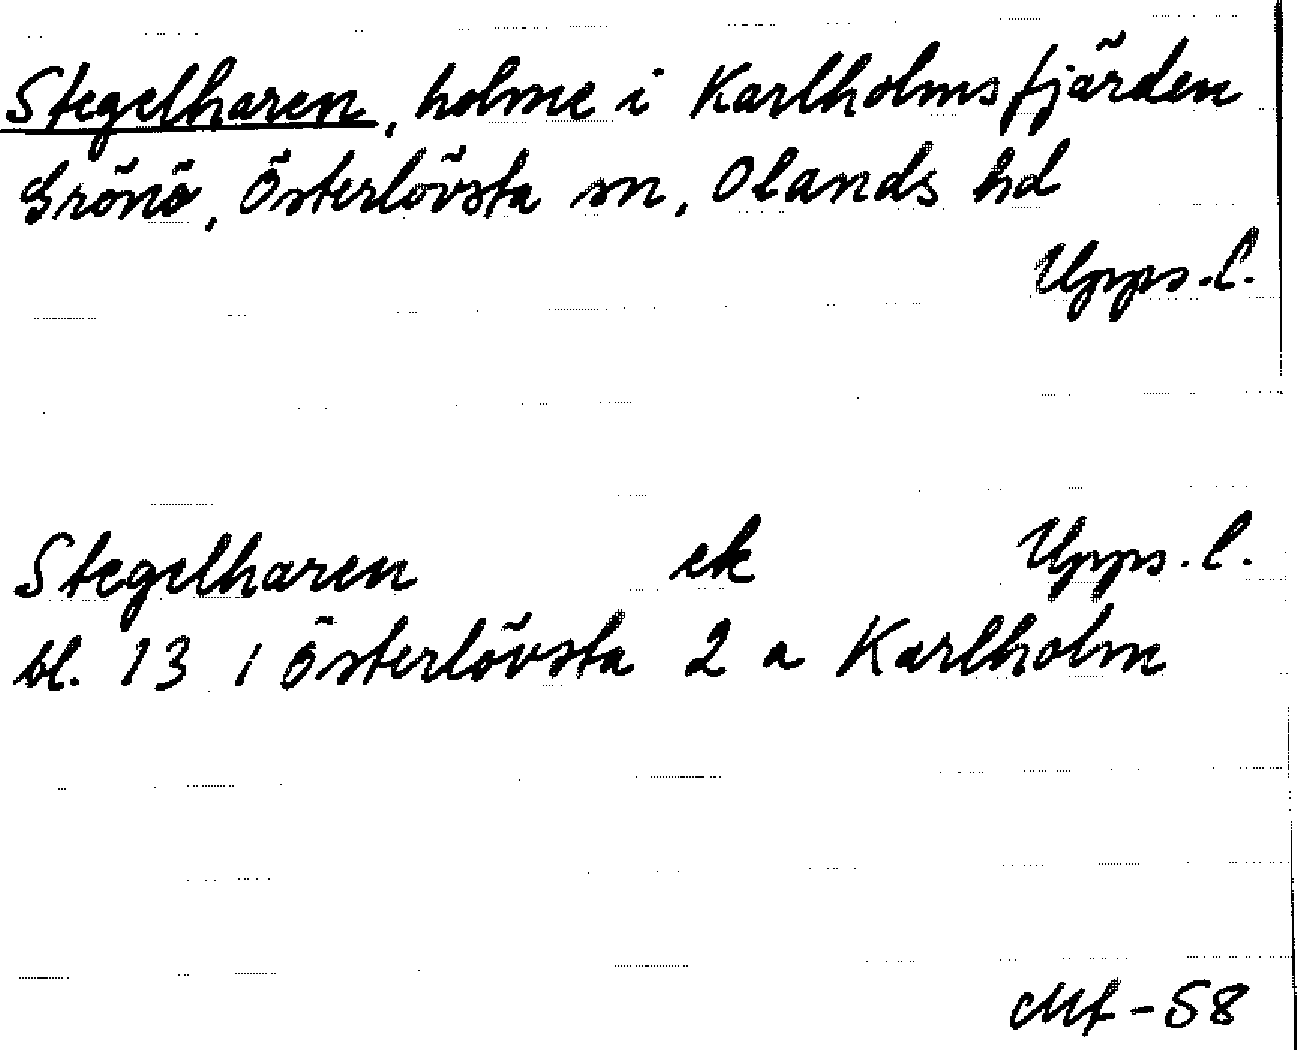 Stegelharen, holme i Karlholmsfjärden
Grönö, Österlövsta sn, Olands hd
Upps. l.
Stegelharen ek Upps. l.
bl. 13 1 Österlövsta 2 a Karlholm
Mf-58